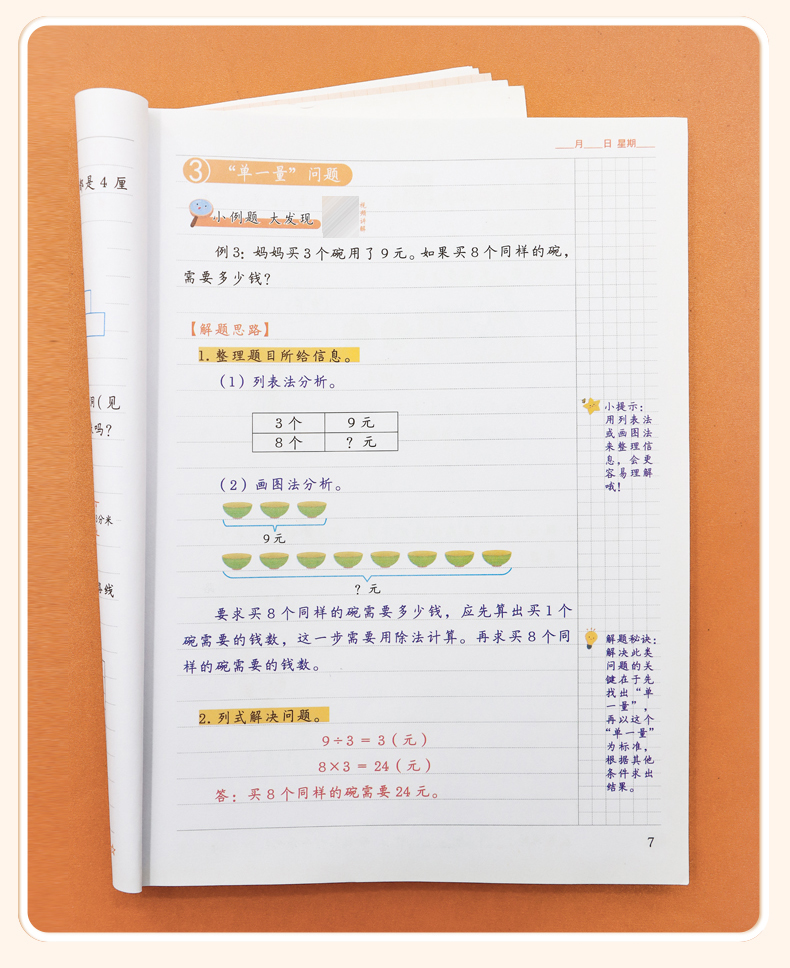 是 4 厘
（见
吗？
分米
线
___月___日 星期___
3 “单一量”问题
小例题 大发现
视频讲解
例3：妈妈买3个碗用了9元。如果买8个同样的碗，
需要多少钱？
【解题思路】
1. 整理题目所给信息。
（1）列表法分析。
3 个 9 元
8 个 ？元
（2）画图法分析。
9元
？元
要求买8个同样的碗需要多少钱，应先算出买1个
碗需要的钱数，这一步需要用除法计算。再求买8个同
样的碗需要的钱数。
2. 列式解决问题。
9÷3＝3（元）
8×3＝24（元）
答：买8个同样的碗需要24元。
小提示：
用列表法
或画图法
来整理信
息，会更
容易理解
哦！
解题秘诀：
解决此类
问题的关
键在于先
找出“单
一量”，
再以这个
“单一量”
为标准，
根据其他
条件求出
结果。
7